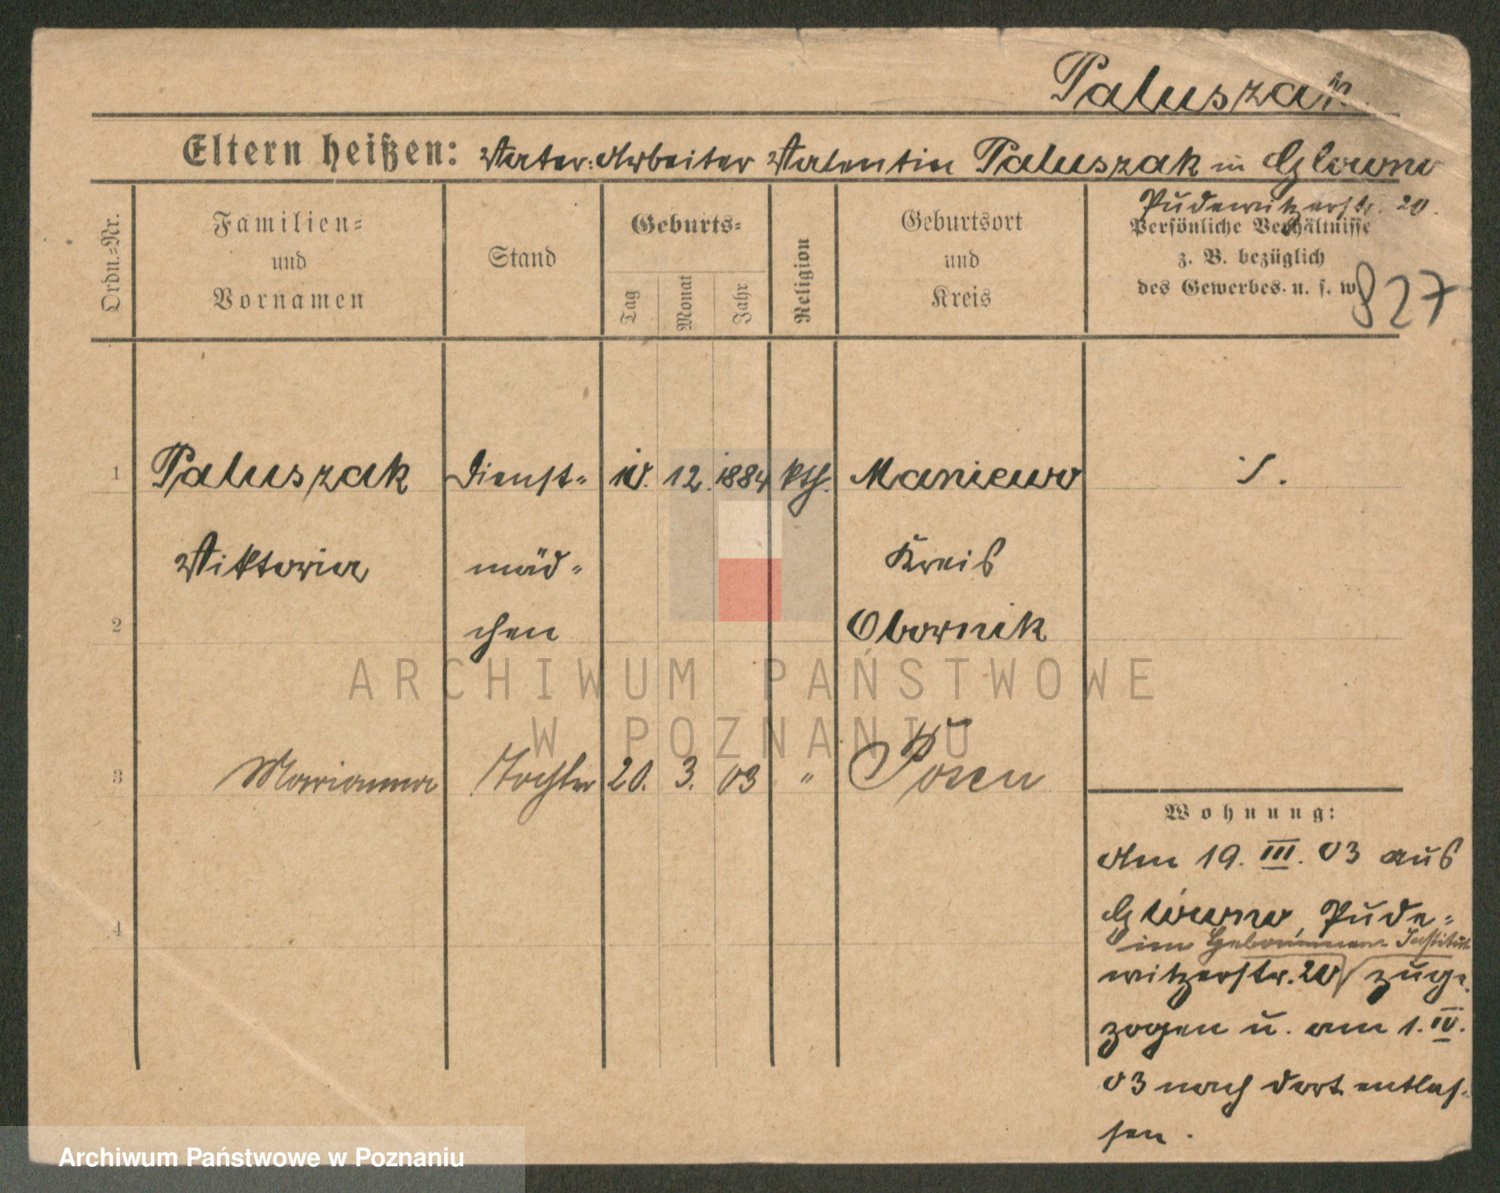 Paluszak
Eltern heißen: Vater: Arbeiter Valentin Paluszak in Glowno
Pudewitzerstr. 20.
Ordn.-Nr.
Familien-
und
Vornamen
Stand
Geburts-
Tag
Monat
Jahr
Religion
Geburtsort
und
Kreis
Persönliche Verhältnisse
z. B. bezüglich
des Gewerbes u. s. w.
827
1 Paluszak Dienst- 10. 12. 1884 kth. Maniewo
Viktoria mäd- Kreis
2 chen Obornik
3 Marianna Tochter 20. 3. 03 " Posen
4
Wohnung:
Am 19. III. 03 aus
Glowno, Pude-
im Hebammen Institut
witzerstr. 20 zuge-
zogen u. am 1. IV.
03 nach dort entlas-
sen.
ARCHIWUM PAŃSTWOWE
W POZNANIU
Archiwum Państwowe w Poznaniu